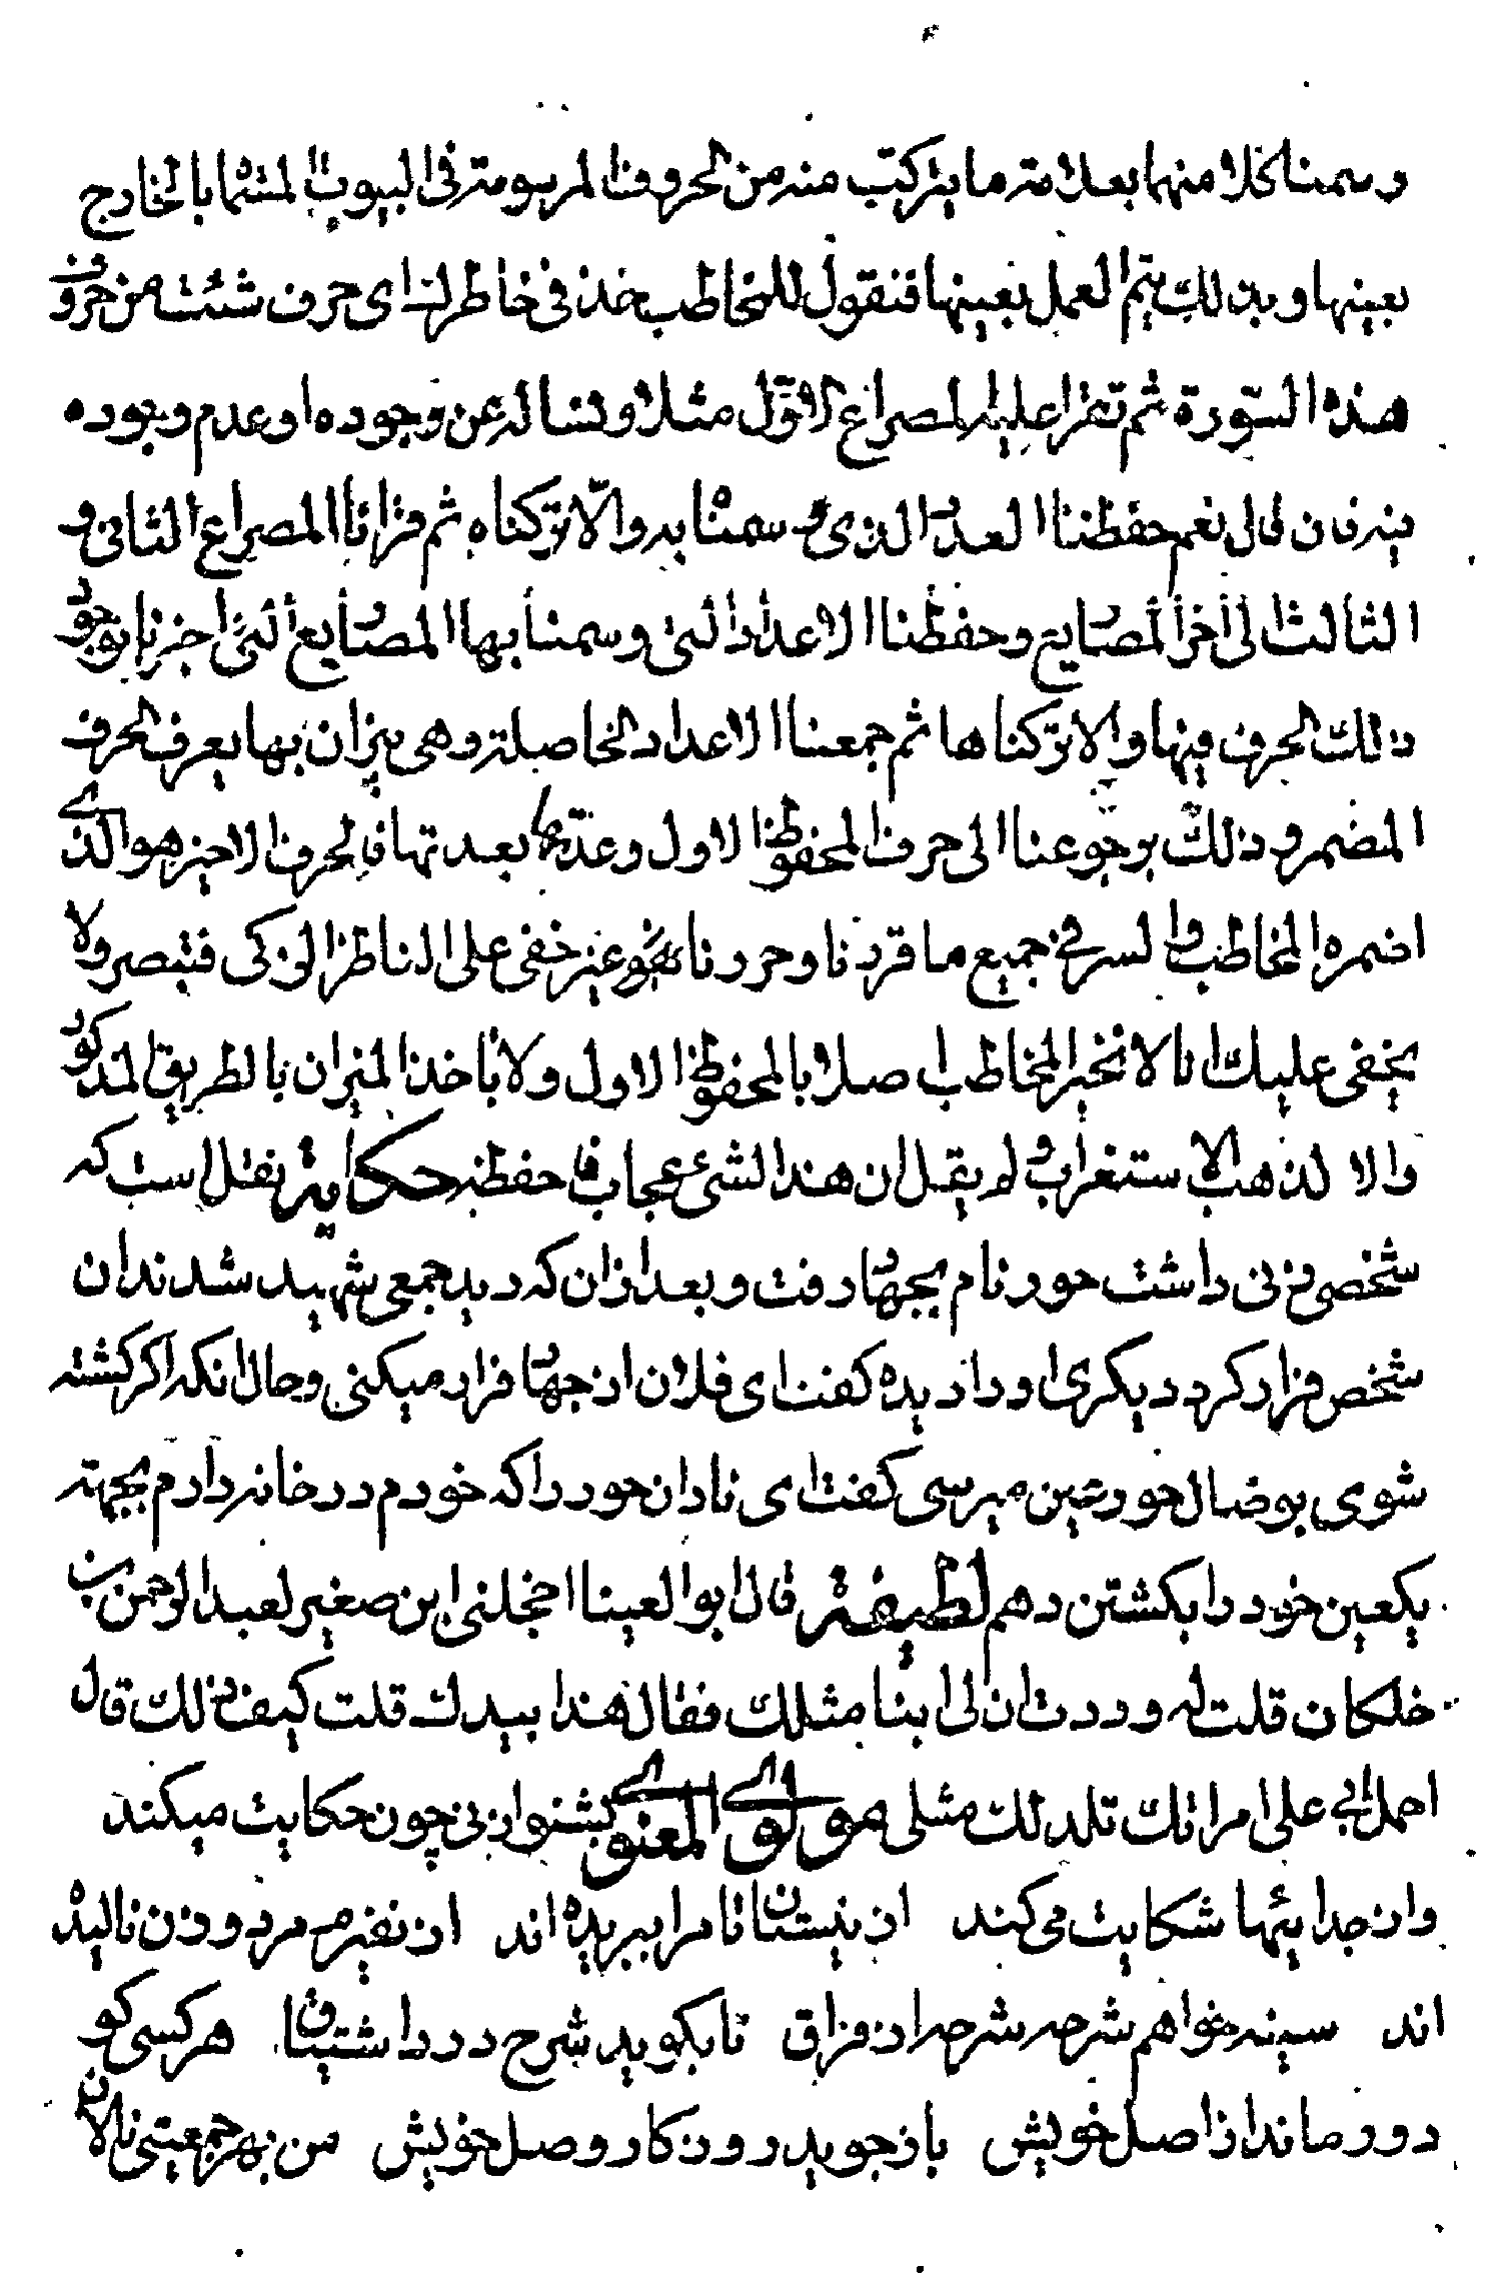 وسمنا كلا منهما بعلامته ما يتركب منه من الحروف المرسومة في البيوت المسماة بالخارج
بعينها وبذلك يتم العمل بعينها فنقول للمخاطب خذ في خاطرك اي حرف شئت من حروف
هذه السورة ثم تقرا عليه المصراع الاول مثلا وتساله عن وجوده او عدم وجوده
فيه فان قال نعم حفظنا العدد الذي وسمناه به والا تركناه ثم قرانا المصراع الثاني و
الثالث الى آخر المصاريع وحفظنا الاعداد التي وسمنا بها المصاريع التي اخبرنا بوجود
ذلك الحرف فيها والا تركناها ثم جمعنا الاعداد الحاصلة وهي ميزان بها يعرف الحرف
المضمر وذلك برجوعنا الى حرف المحفوظ الاول وعدها بعدتها فالحرف الاخير هو الذي
اضمره المخاطب والسر في جميع ما قررنا وحررنا نحو غير خفي على الناظر الزكي فتبصر ولا
يخفى عليك انا لا نخبر المخاطب اصلا بالمحفوظ الاول ولا باخذ الميزان بالطريق المذكور
والا لذهب الاستغراب ولم يقل ان هذا لشئ عجاب فاحفظه حكاية نقل است كه
شخصي زني داشت حور نام بجهاد رفت وبعد ازان كه ديد جمعي شهيد شدند ان
شخص فرار كرد ديكري او را ديده كفت اي فلان از جهاد فرار ميكني وحال انكه اكر كشته
شوي بوصال حور عين ميرسي كفت اي نادان حور را كه خودم در خانه دارم بجهة
يكعين خود را بكشتن دهم لطيفة قال ابو العينا اخجلني ابن صغير لعبد الرحمن بن
خلكان قلت له وددت ان لي ابنا مثلك فقال هذا بيدك قلت كيف ذلك قال
احمل ابي على امراتك تلد لك مثلي مولوي المعنوي بشنو از ني چون حكايت ميكند
واز جدائيها شكايت مي كند از نيستان تا مرا ببريده اند از نفيرم مرد وزن ناليده
اند سينه خواهم شرحه شرحه از فراق تا بكويد شرح درد اشتياق هر كسي كو
دور ماند از اصل خويش باز جويد روزكار وصل خويش من بهر جمعيتي نالان